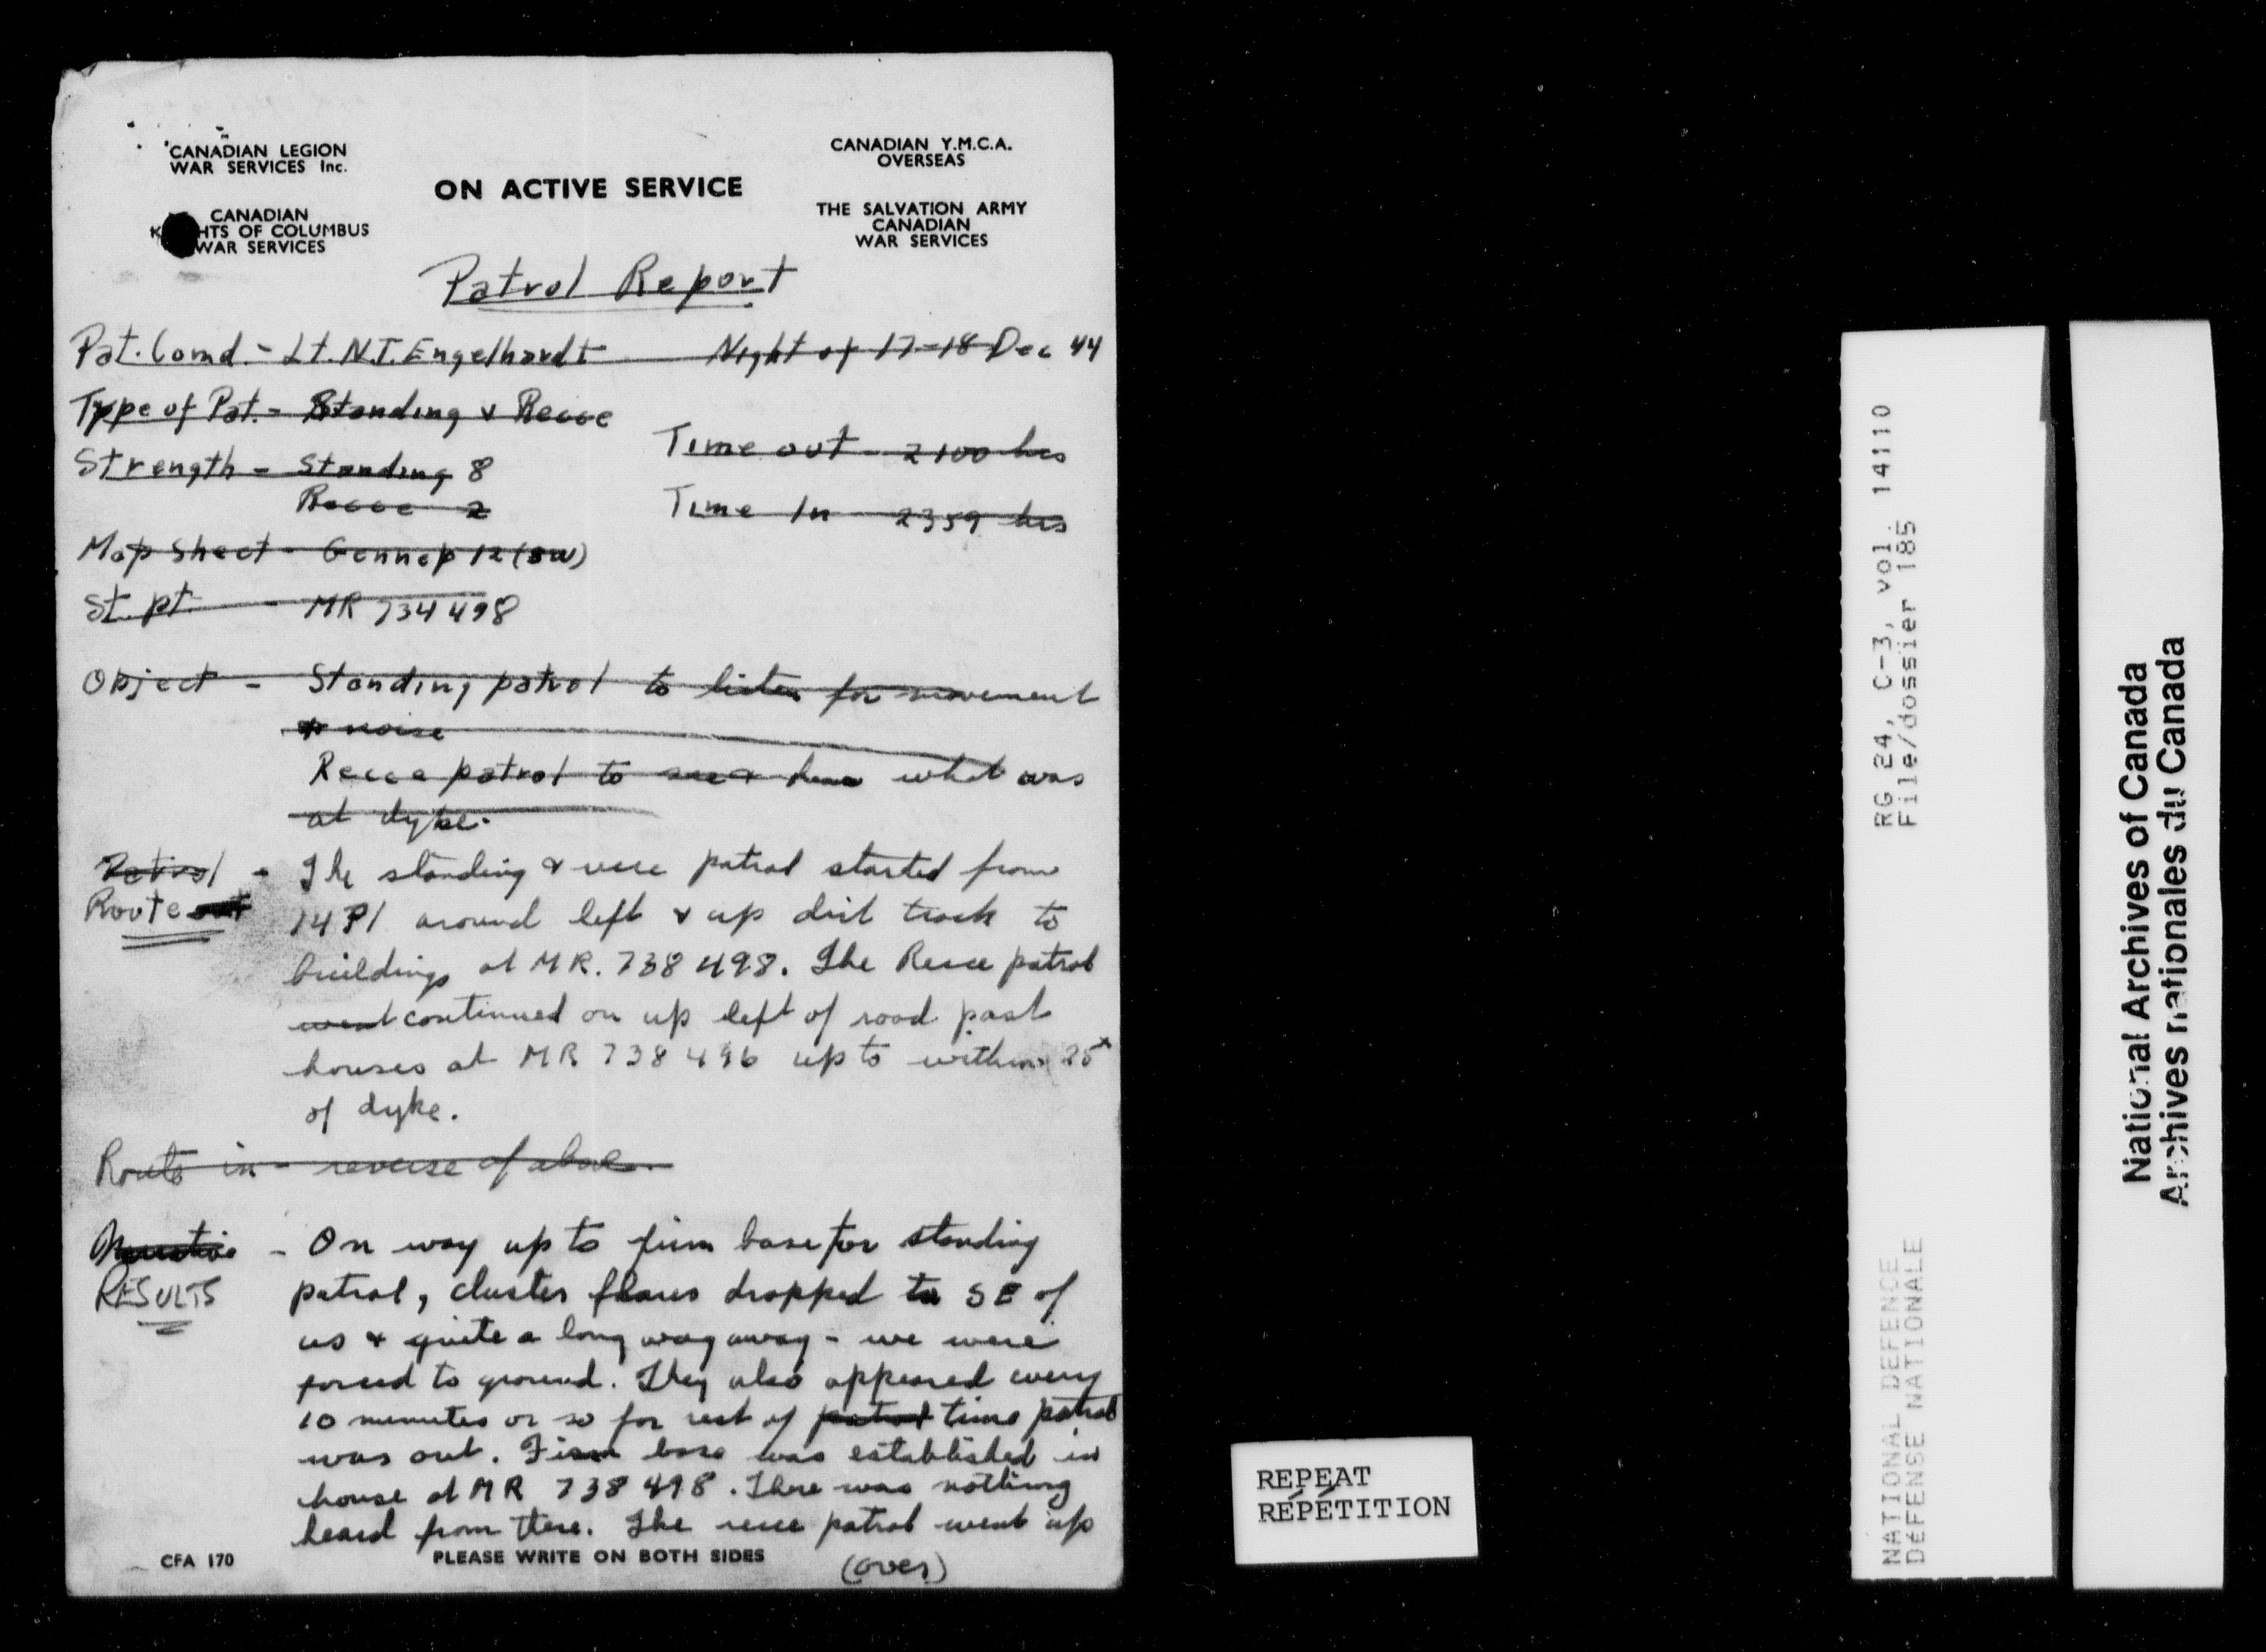 CANADIAN LEGION
WAR SERVICES Inc.
CANADIAN
K HTS OF COLUMBUS
WAR SERVICES
ON ACTIVE SERVICE
CANADIAN Y.M.C.A.
OVERSEAS
THE SALVATION ARMY
CANADIAN
WAR SERVICES
Patrol Report
Pat. Comd. - Lt. N.J. Engelhardt Night of 17-18 Dec 44
Type of Pat. - Standing & Recce
Time out - 2100 hrs
Strength - Standing 8
Recce 2
Time In 2359 hrs
Map Sheet - Gennep 12 (SW)
St. pt. - MR 734498
Object - Standing patrol to listen for movement
& noise
Recce patrol to see & hear what was
at dyke.
Patrol - The standing & recce patrol started from
Route out 14 Pl around left & up dirt track to
buildings at MR. 738498. The Recce patrol
went continued on up left of road past
houses at MR 738496 up to within 25x
of dyke.
Route in - reverse of above.
Narrative - On way up to firm base for standing
RESULTS patrol, cluster flares dropped to SE of
us & quite a long way away - we were
forced to ground. They also appeared every
10 minutes or so for rest of patrol time patrol
was out. Firm base was established in
house at MR 738498. There was nothing
heard from there. The recce patrol went up
CFA 170
PLEASE WRITE ON BOTH SIDES
(over)
REPEAT
RÉPÉTITION
RG 24, C-3, vol. 14110
File/dossier 185
NATIONAL DEFENCE
DEFENSE NATIONALE
National Archives of Canada
Archives nationales du Canada